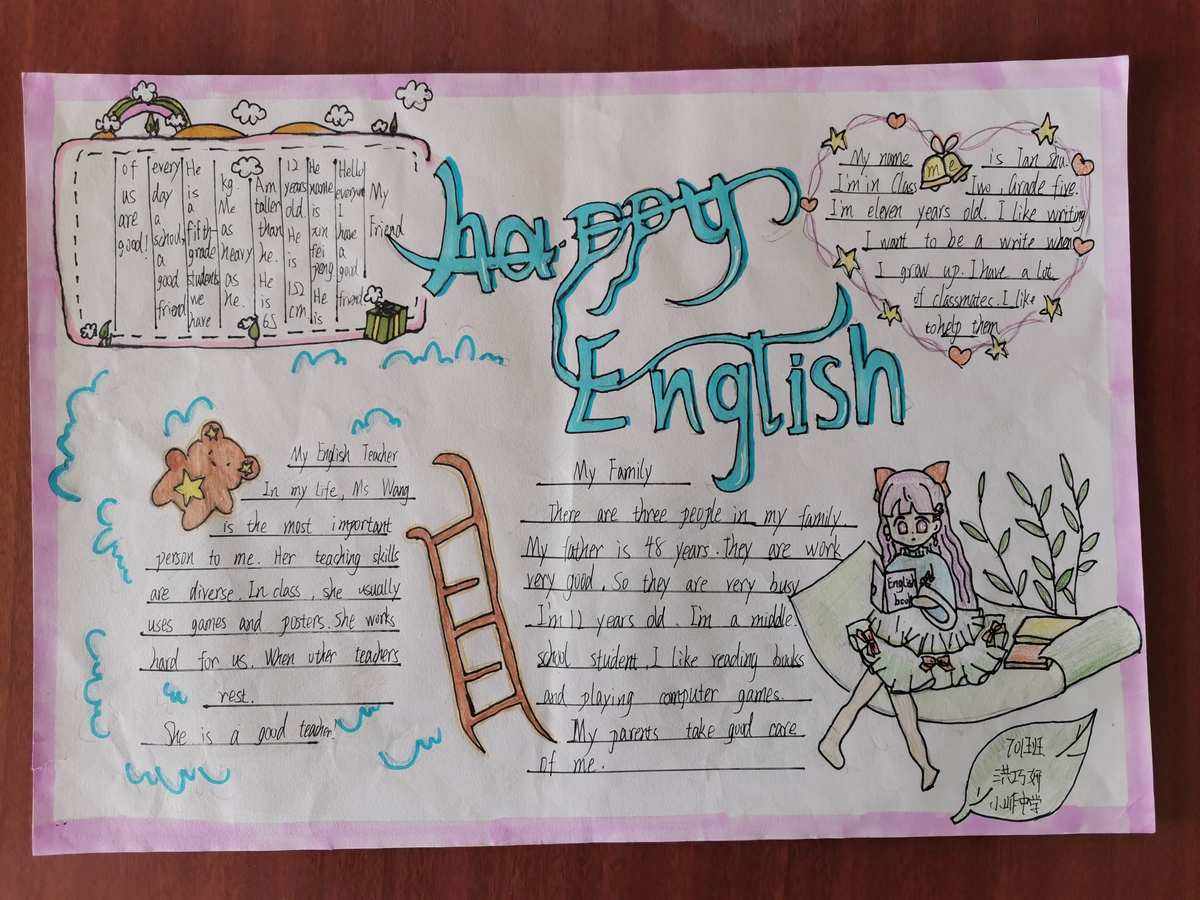 happy
English
My
Friend
Helly everyone I have a good friend
He name is xin fei peng He is
12 years old. He is 152 cm
Am taller than he. He is 65
kg. Me as heavy as he.
He is a fifth-grade students we have
every day a school a good friend
of us are good!
My name me is Tan Shu.
I'm in Class Two, Grade five.
I'm eleven years old. I like writing
I want to be a write when
I grow up. I have a lot
of classmates. I like
to help them
My English Teacher
In my life, Ms Wang
is the most important
person to me. Her teaching skills
are diverse. In class, she usually
uses games and posters. She works
hard for us. When other teachers
rest.
She is a good teacher!
My Family
There are three people in my family.
My father is 48 years. They are work
very good. So they are very busy
I'm 12 years old. I'm a middle
school student, I like reading books
and playing computer games.
My parents take good care
of me.
English
book
701班
洪巧妍
小岞中学